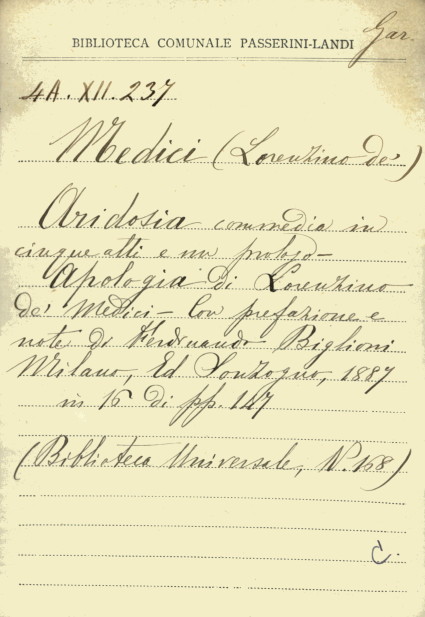 Gar.
BIBLIOTECA COMUNALE PASSERINI-LANDI
4A. XII. 237
Medici (Lorenzino de')
Aridosia commedia in
cinque atti e un prologo -
Apologia di Lorenzino
de' Medici - Con prefazione e
note di Ferdinando Biglioni
Milano, Ed Sonzogno, 1887
in 16 di pp. 147
(Biblioteca Universale, N. 158)
C.